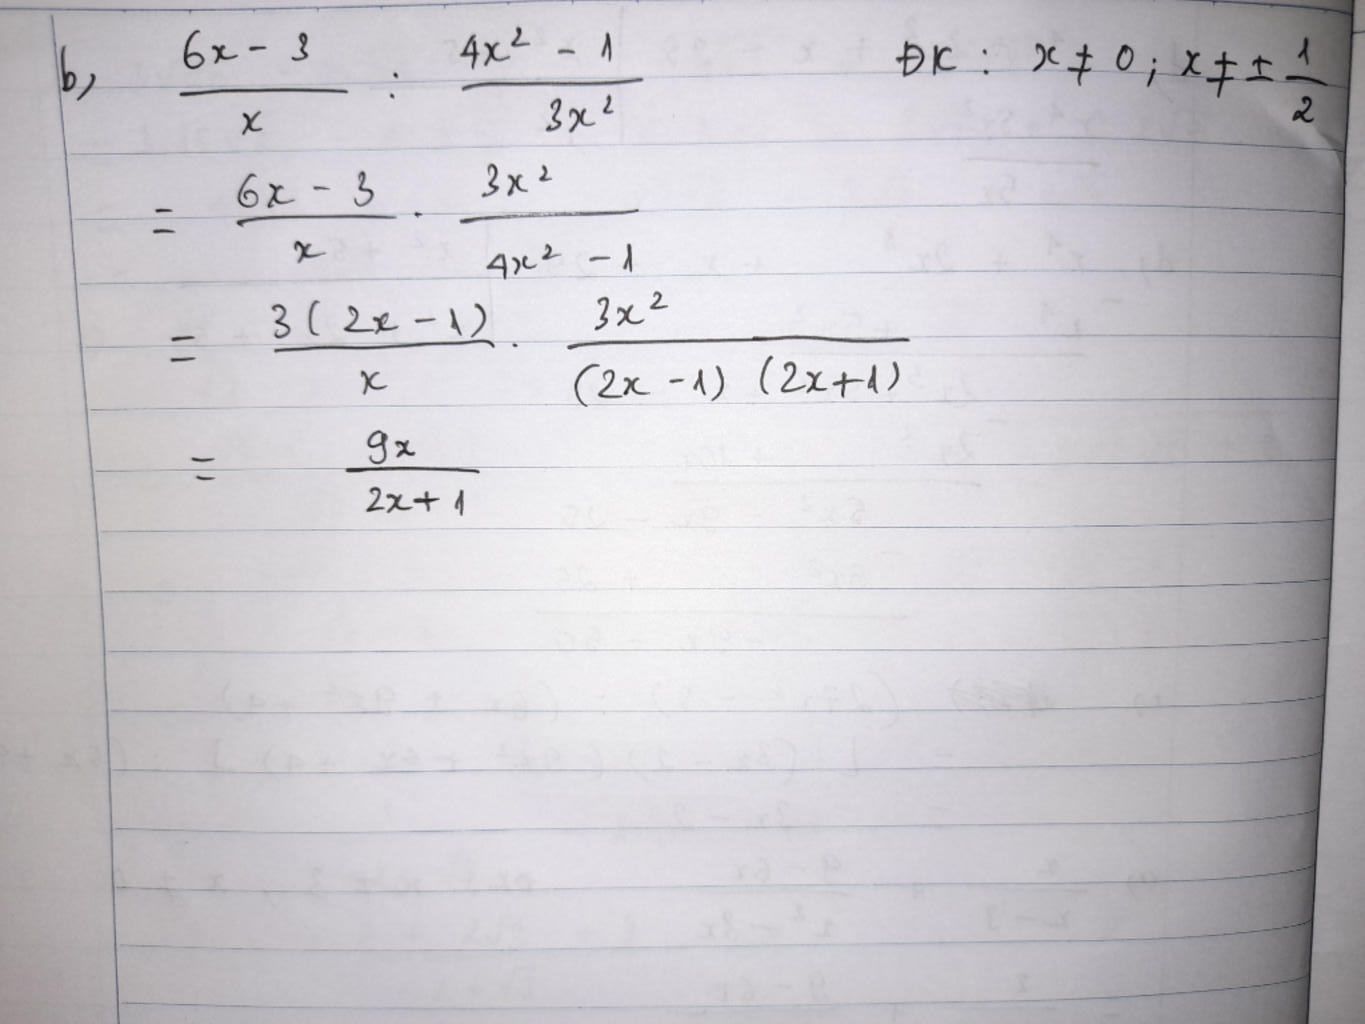 b, \frac{6x - 3}{x} : \frac{4x^2 - 1}{3x^2} ĐK : x ≠ 0 ; x ≠ ± \frac{1}{2}
= \frac{6x - 3}{x} . \frac{3x^2}{4x^2 - 1}
= \frac{3(2x - 1)}{x} . \frac{3x^2}{(2x - 1) (2x + 1)}
= \frac{9x}{2x + 1}